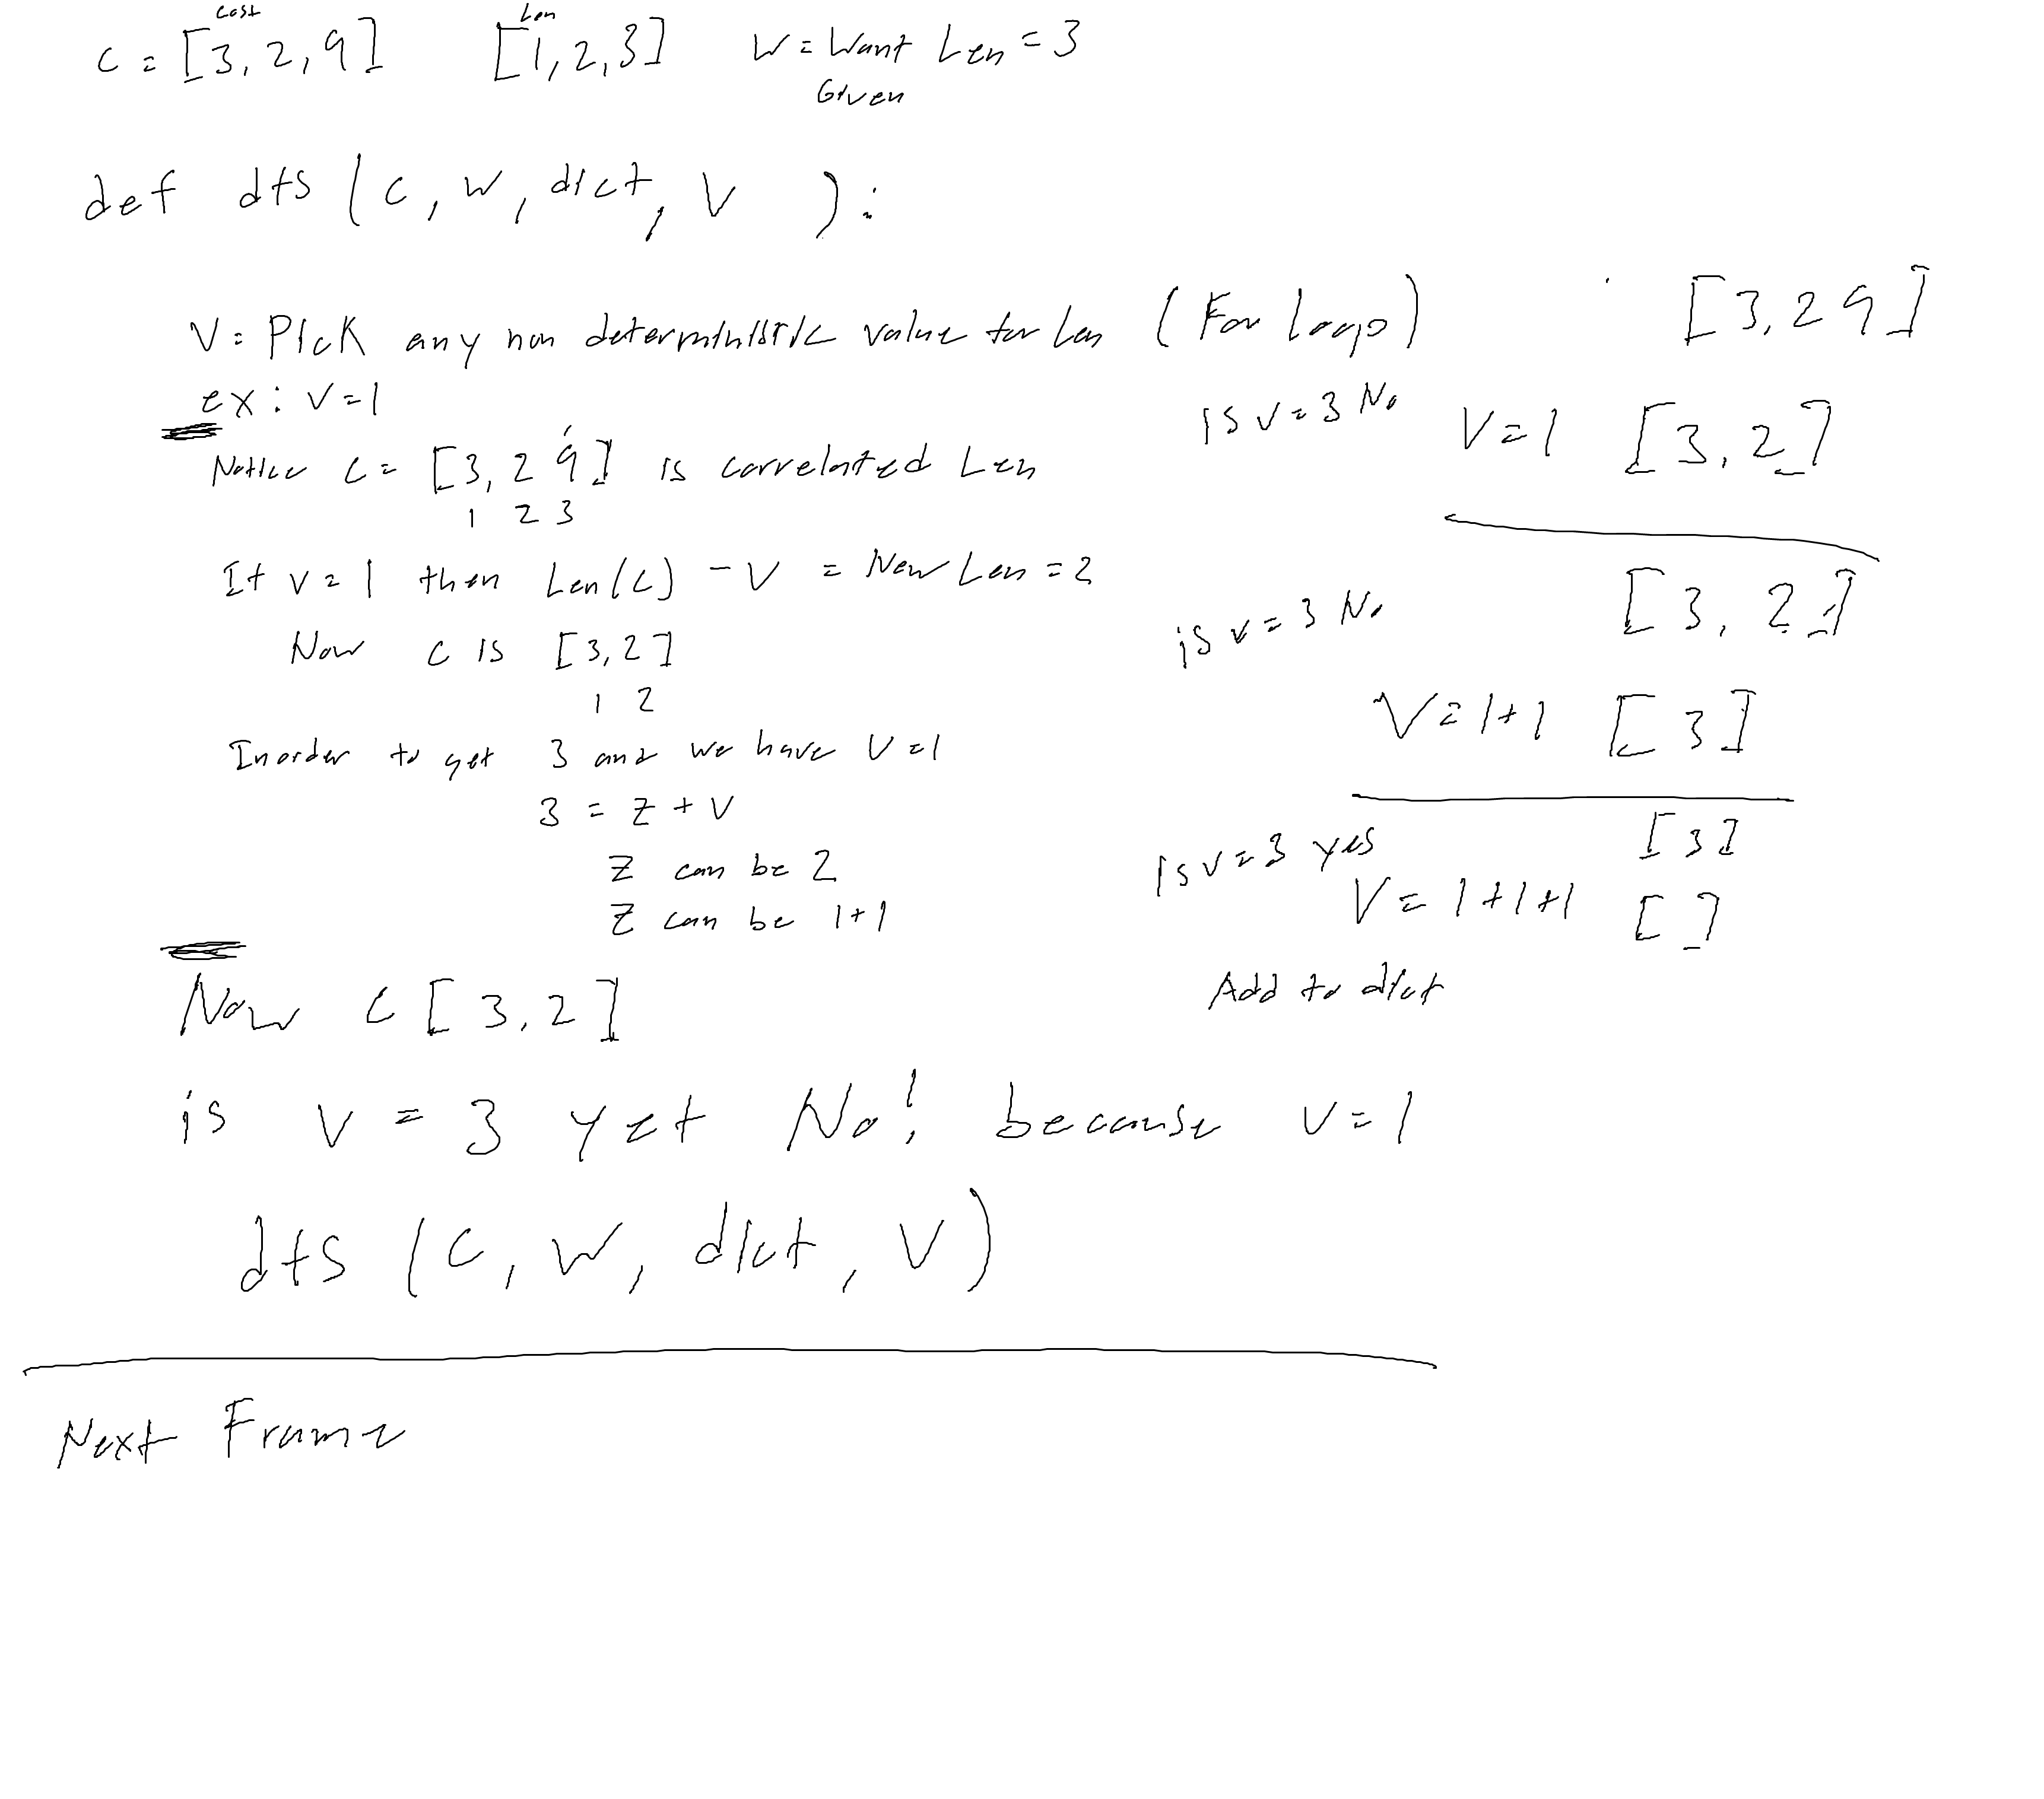 Cost Len
C = [3, 2, 9] [1, 2, 3] W = Want Len = 3
Given
def dfs (C, W, dict, V ):
V = Pick any non deterministic value for Len (For loop)
ex: V=1
Notice C = [3, 2 9] is correlated Len
1 2 3
If V = 1 then Len(C) - V = New Len = 2
Now C is [3, 2]
1 2
In order to get 3 and we have V = 1
3 = Z + V
Z can be 2
Z can be 1+1
Now C [3, 2]
is V = 3 yet No! because V = 1
dfs (C, W, dict, V)
Next Frame
[3, 2 9]
is V = 3 No V = 1 [3, 2]
[3, 2]
is V = 3 No
V = 1+1 [3]
[3]
is V = 3 yes
V = 1+1+1 []
Add to dict